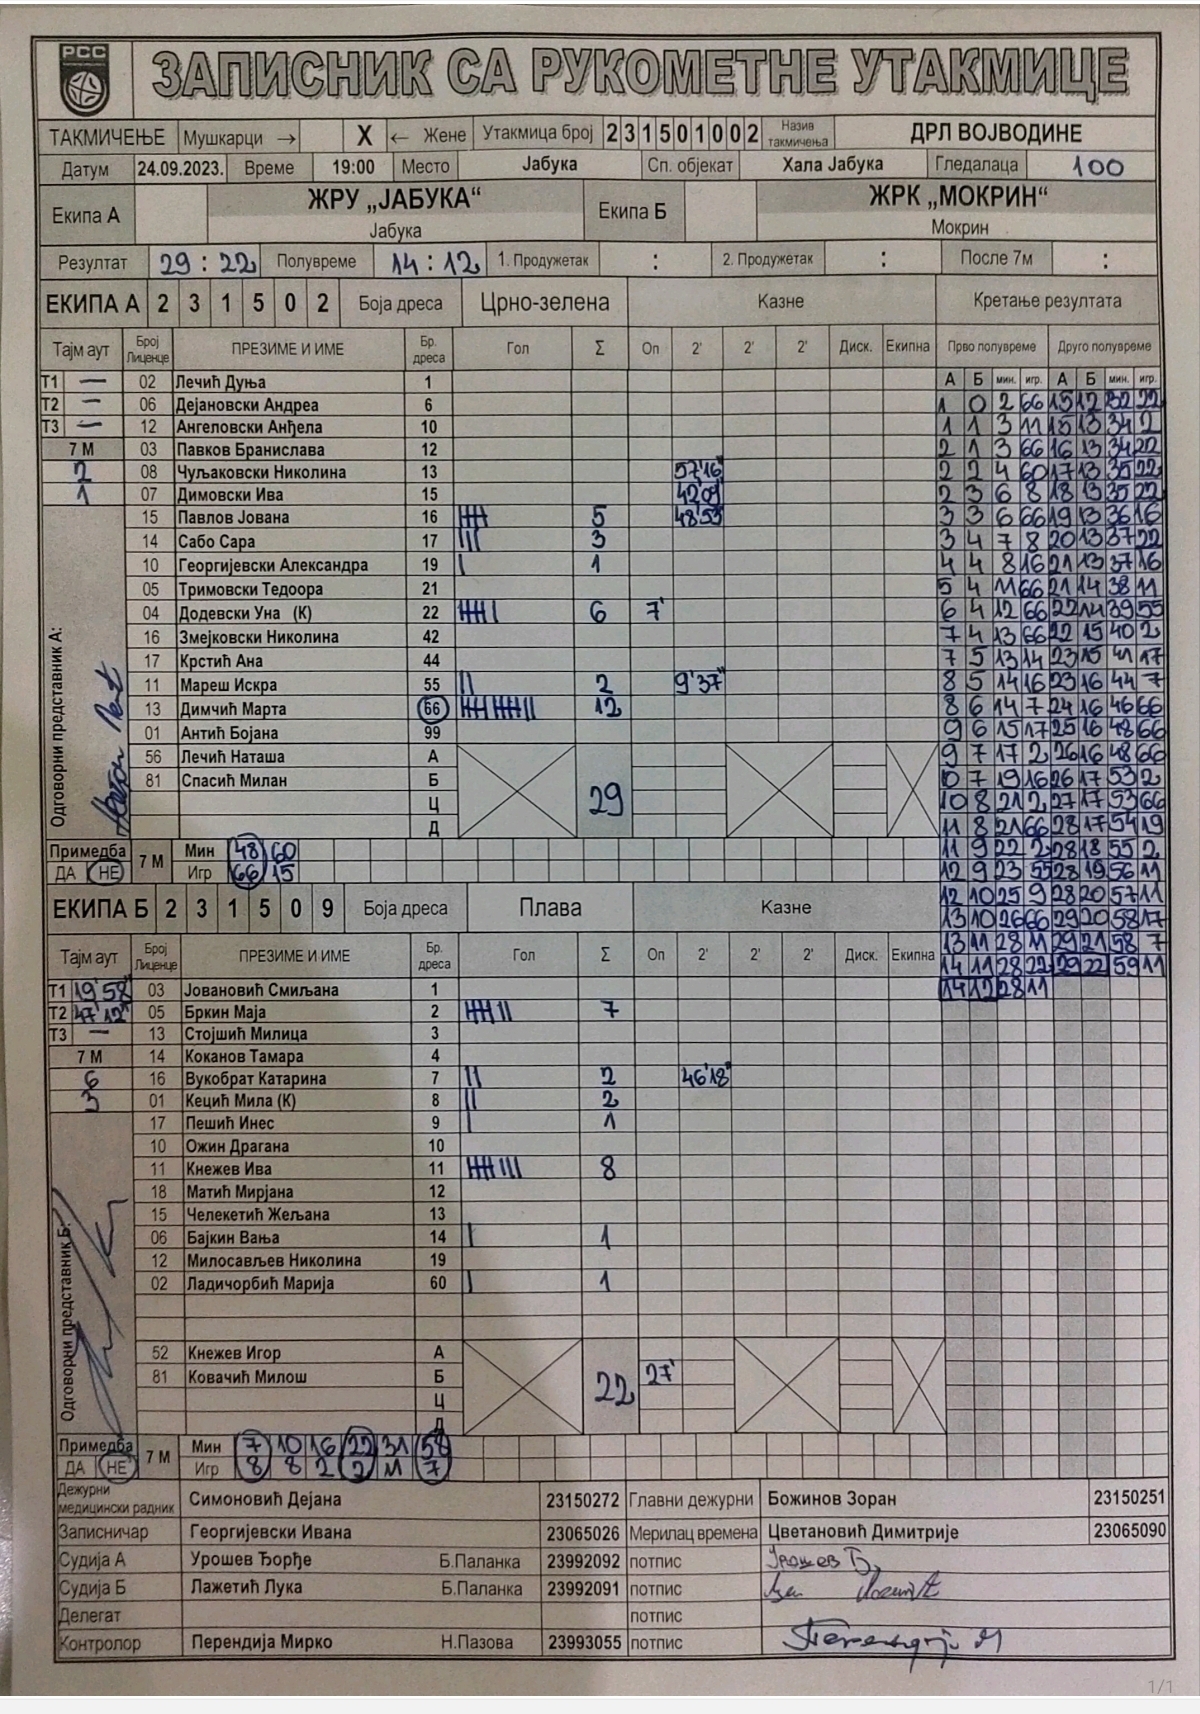 РСС
ЗАПИСНИК СА РУКОМЕТНЕ УТАКМИЦЕ
ТАКМИЧЕЊЕ Мушкарци → X ← Жене Утакмица број 2 3 1 5 0 1 0 0 2 Назив такмичења ДРЛ ВОЈВОДИНЕ
Датум 24.09.2023. Време 19:00 Место Јабука Сп. објекат Хала Јабука Гледалаца 100
Екипа А ЖРУ „ЈАБУКА“ Екипа Б ЖРК „МОКРИН“
Јабука Мокрин
Резултат 29 : 22 Полувреме 14 : 12 1. Продужетак : 2. Продужетак : После 7м :
ЕКИПА А 2 3 1 5 0 2 Боја дреса Црно-зелена Казне Кретање резултата
Тајм аут Број Лиценце ПРЕЗИМЕ И ИМЕ Бр. дреса Гол Σ Оп 2' 2' 2' Диск. Екипна Прво полувреме Друго полувреме
Т1 — 02 Лечић Дуња 1 А Б мин. игр. А Б мин. игр.
Т2 — 06 Дејановски Андреа 6 1 0 2 66 15 12 32 22
Т3 — 12 Ангеловски Анђела 10 1 1 3 11 15 13 34 2
7 М 03 Павков Бранислава 12 2 1 3 66 16 13 34 22
2 08 Чуљаковски Николина 13 57'16" 2 2 4 60 17 13 35 22
1 07 Димовски Ива 15 42'09" 2 3 6 8 18 13 35 22
15 Павлов Јована 16 5 48'53" 3 3 6 66 19 13 36 16
14 Сабо Сара 17 3 3 4 7 8 20 13 37 22
10 Георгијевски Александра 19 1 4 4 8 16 21 13 37 16
05 Тримовски Тедоора 21 5 4 11 66 21 14 38 11
04 Додевски Уна (К) 22 6 7' 6 4 12 66 22 14 39 55
16 Змејковски Николина 42 7 4 13 66 22 15 40 2
17 Крстић Ана 44 7 5 13 14 23 15 41 17
11 Мареш Искра 55 2 9'37" 8 5 14 16 23 16 44 7
13 Димчић Марта 66 12 8 6 14 7 24 16 46 66
01 Антић Бојана 99 9 6 15 17 25 16 48 66
56 Лечић Наташа А 9 7 17 2 26 16 48 66
81 Спасић Милан Б 29 10 7 19 16 26 17 53 2
Ц 10 8 21 2 27 17 53 66
Д 11 8 21 66 28 17 54 19
Одговорни представник А:
Примедба 7 М Мин 48 60 11 9 22 2 28 18 55 2
ДА НЕ Игр 66 15 12 9 23 55 28 19 56 11
ЕКИПА Б 2 3 1 5 0 9 Боја дреса Плава Казне 12 10 25 9 28 20 57 11
13 10 26 66 29 20 58 17
Тајм аут Број Лиценце ПРЕЗИМЕ И ИМЕ Бр. дреса Гол Σ Оп 2' 2' 2' Диск. Екипна 13 11 28 11 29 21 58 7
14 11 28 22 29 22 59 11
Т1 19'58" 03 Јовановић Смиљана 1 14 12 28 11
Т2 47'12" 05 Бркин Маја 2 7
Т3 — 13 Стојшић Милица 3
7 М 14 Коканов Тамара 4
6 16 Вукобрат Катарина 7 2 46'18"
3 01 Кецић Мила (К) 8 2
17 Пешић Инес 9 1
10 Ожин Драгана 10
11 Кнежев Ива 11 8
18 Матић Мирјана 12
15 Челекетић Жељана 13
06 Бајкин Вања 14 1
12 Милосављев Николина 19
02 Ладичорбић Марија 60 1
52 Кнежев Игор А
81 Ковачић Милош Б 22 27'
Ц
Д
Одговорни представник Б:
Примедба 7 М Мин 7 10 16 22 31 58
ДА НЕ Игр 8 8 2 2 11 7
Дежурни медицински радник Симоновић Дејана 23150272 Главни дежурни Божинов Зоран 23150251
Записничар Георгијевски Ивана 23065026 Мерилац времена Цветановић Димитрије 23065090
Судија А Урошев Ђорђе Б.Паланка 23992092 потпис Урошев Ђ.
Судија Б Лажетић Лука Б.Паланка 23992091 потпис
Делегат потпис
Контролор Перендија Мирко Н.Пазова 23993055 потпис Перендија М
1/1